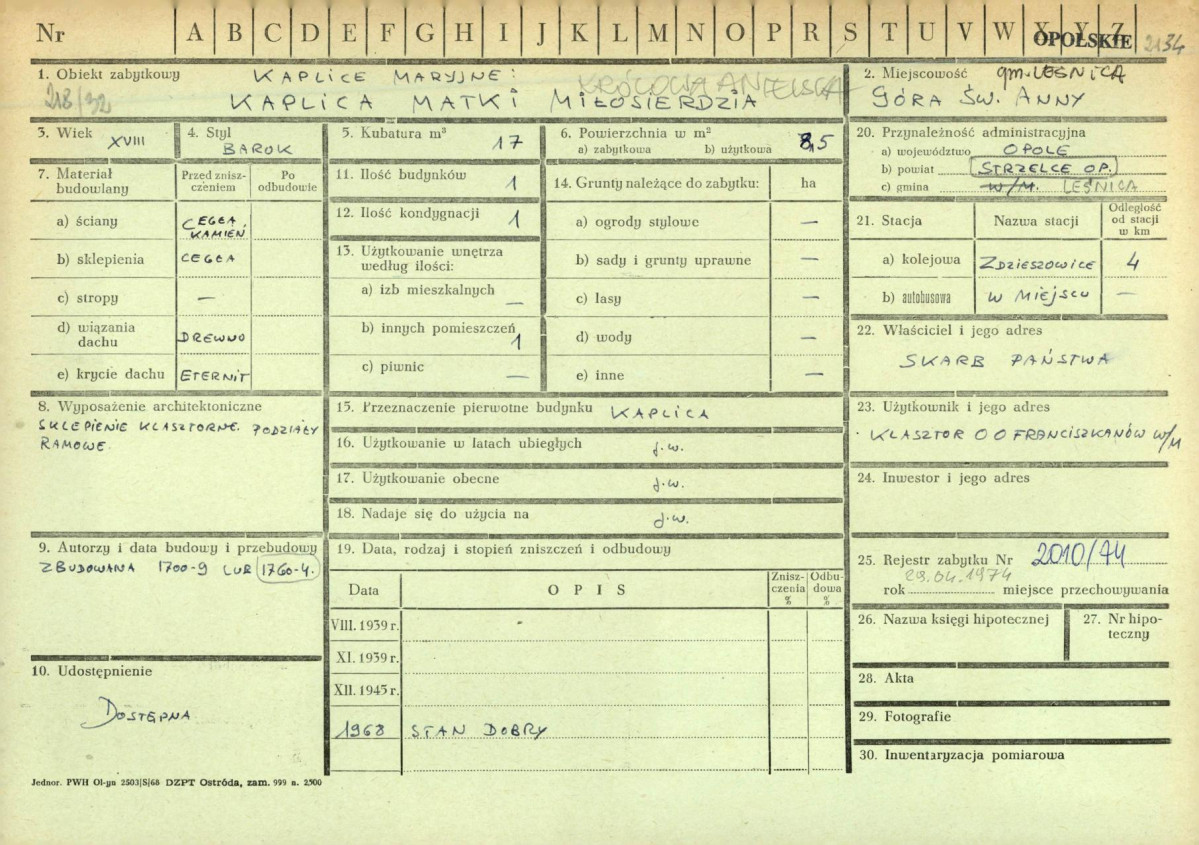 Nr A B C D E F G H I J K L M N O P R S T U V W X Y Z OPOLSKIE 2134
1. Obiekt zabytkowy KAPLICE MARYJNE:
218/32 KRÓLOWA ANIELSKA
KAPLICA MATKI MIŁOSIERDZIA
2. Miejscowość gm. LEŚNICA
GÓRA ŚW. ANNY
3. Wiek XVIII
4. Styl BAROK
5. Kubatura m³ 17
6. Powierzchnia w m²
a) zabytkowa b) użytkowa 8,5
7. Materiał budowlany
Przed zniszczeniem
Po odbudowie
a) ściany CEGŁA, KAMIEŃ
b) sklepienia CEGŁA
c) stropy —
d) wiązania dachu DREWNO
e) krycie dachu ETERNIT
8. Wyposażenie architektoniczne
SKLEPIENIE KLASZTORNE. PODZIAŁY
RAMOWE.
9. Autorzy i data budowy i przebudowy
ZBUDOWANA 1700-9 LUB 1760-4.
10. Udostępnienie
DOSTĘPNA
Jednor. PWH Ol-yn 2503|S|68 DZPT Ostróda, zam. 999 n. 2500
11. Ilość budynków 1
12. Ilość kondygnacji 1
13. Użytkowanie wnętrza
według ilości:
a) izb mieszkalnych —
b) innych pomieszczeń 1
c) piwnic —
14. Grunty należące do zabytku: ha
a) ogrody stylowe —
b) sady i grunty uprawne —
c) lasy —
d) wody —
e) inne —
15. Przeznaczenie pierwotne budynku KAPLICA
16. Użytkowanie w latach ubiegłych j.w.
17. Użytkowanie obecne j.w.
18. Nadaje się do użycia na j.w.
19. Data, rodzaj i stopień zniszczeń i odbudowy
Data OPIS Zniszczenia % Odbudowa %
VIII. 1939 r.
XI. 1939 r.
XII. 1945 r.
1968 STAN DOBRY
20. Przynależność administracyjna
a) województwo OPOLE
b) powiat STRZELCE OP.
c) gmina W/M. LEŚNICA
21. Stacja Nazwa stacji Odległość od stacji w km
a) kolejowa ZDZIESZOWICE 4
b) autobusowa W MIEJSCU —
22. Właściciel i jego adres
SKARB PAŃSTWA
23. Użytkownik i jego adres
KLASZTOR OO FRANCISZKANÓW W/M
24. Inwestor i jego adres
25. Rejestr zabytku Nr 2010/74
29.04.1974
rok miejsce przechowywania
26. Nazwa księgi hipotecznej
27. Nr hipoteczny
28. Akta
29. Fotografie
30. Inwentaryzacja pomiarowa